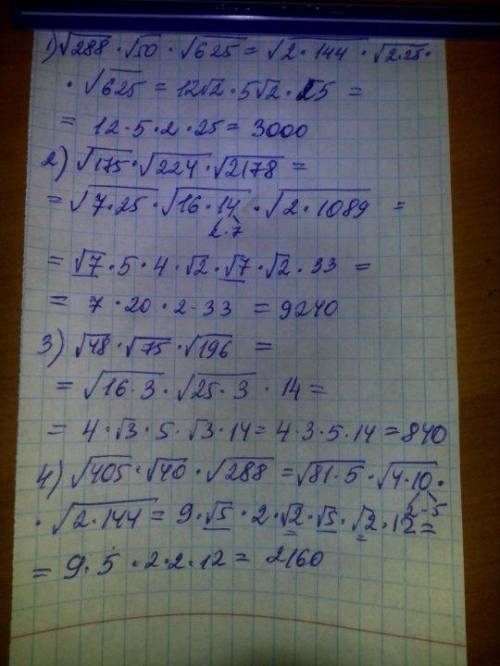 1) √288 · √50 · √625 = √2 · 144 · √2·25 ·
· √625 = 12√2 · 5√2 · 25 =
= 12 · 5 · 2 · 25 = 3000
2) √175 · √224 · √2178 =
= √7 · 25 · √16 · 14 · √2 · 1089 =
2·7
= √7 · 5 · 4 · √2 · √7 · √2 · 33 =
= 7 · 20 · 2 · 33 = 9240
3) √48 · √75 · √196 =
= √16 · 3 · √25 · 3 · 14 =
= 4 · √3 · 5 · √3 · 14 = 4 · 3 · 5 · 14 = 840
4) √405 · √40 · √288 = √81 · 5 · √4·10 ·
2·5
· √2 · 144 = 9 · √5 · 2 · √2 · √5 · √2 · 12 =
= 9 · 5 · 2 · 2 · 12 = 2160